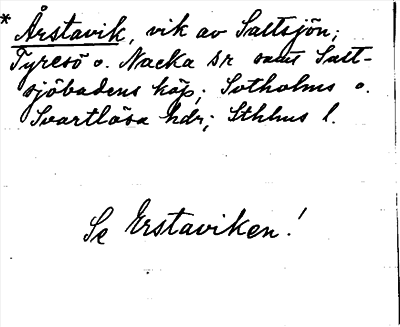 * Årstavik, vik av Saltsjön;
Tyresö o. Nacka sr samt Salt-
sjöbadens köp; Sotholms o.
Svartlösa hdr; Sthlms l.
Se Erstaviken!